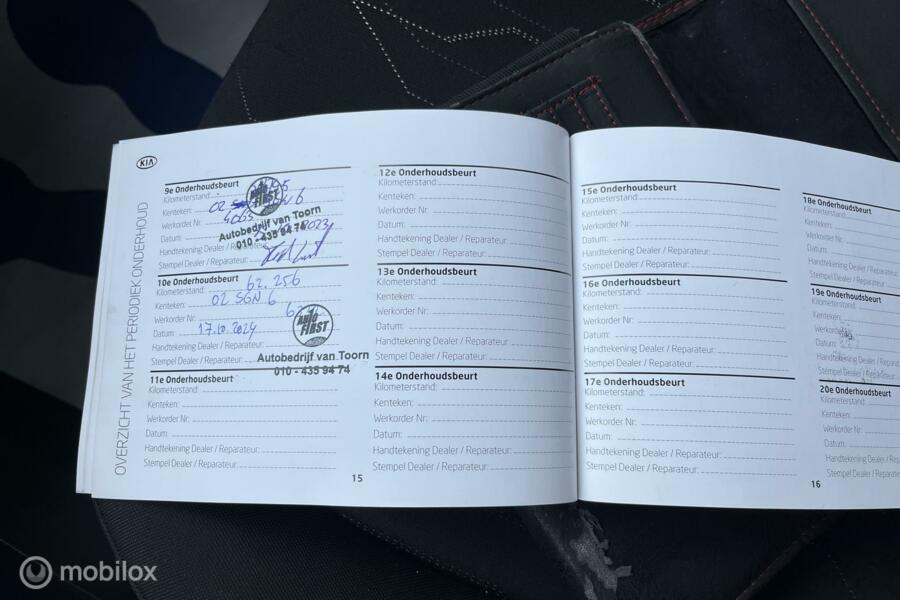 KIA
OVERZICHT VAN HET PERIODIEK ONDERHOUD
9e Onderhoudsbeurt
Kilometerstand:
Kenteken: 02
Werkorder Nr:
Datum: 2023
Handtekening Dealer / Reparateur:
Stempel Dealer / Reparateur:
AUTO FIRST
Autobedrijf van Toorn
010 - 435 94 74
10e Onderhoudsbeurt
Kilometerstand: 62.256
Kenteken: 02 SGN 6
Werkorder Nr:
Datum: 17.10.2024
Handtekening Dealer / Reparateur:
Stempel Dealer / Reparateur:
AUTO FIRST
Autobedrijf van Toorn
010 - 435 94 74
11e Onderhoudsbeurt
Kilometerstand:
Kenteken:
Werkorder Nr:
Datum:
Handtekening Dealer / Reparateur:
Stempel Dealer / Reparateur:
15
12e Onderhoudsbeurt
Kilometerstand:
Kenteken:
Werkorder Nr:
Datum:
Handtekening Dealer / Reparateur:
Stempel Dealer / Reparateur:
13e Onderhoudsbeurt
Kilometerstand:
Kenteken:
Werkorder Nr:
Datum:
Handtekening Dealer / Reparateur:
Stempel Dealer / Reparateur:
14e Onderhoudsbeurt
Kilometerstand:
Kenteken:
Werkorder Nr:
Datum:
Handtekening Dealer / Reparateur:
Stempel Dealer / Reparateur:
15e Onderhoudsbeurt
Kilometerstand:
Kenteken:
Werkorder Nr:
Datum:
Handtekening Dealer / Reparateur:
Stempel Dealer / Reparateur:
16e Onderhoudsbeurt
Kilometerstand:
Kenteken:
Werkorder Nr:
Datum:
Handtekening Dealer / Reparateur:
Stempel Dealer / Reparateur:
17e Onderhoudsbeurt
Kilometerstand:
Kenteken:
Werkorder Nr:
Datum:
Handtekening Dealer / Reparateur:
Stempel Dealer / Reparateur:
16
18e Onderhoudsbeurt
Kilometerstand:
Kenteken:
Werkorder Nr:
Datum:
Handtekening Dealer /
Stempel Dealer /
19e Onderhoudsbeurt
Kilometerstand:
Kenteken:
Werkorder
Datum:
Handtekening Dealer /
Stempel Dealer /
20e Onderhoudsbeurt
Kilometerstand:
Kenteken:
Werkorder Nr:
Datum:
Handtekening Dealer /
Stempel Dealer /
mobilox